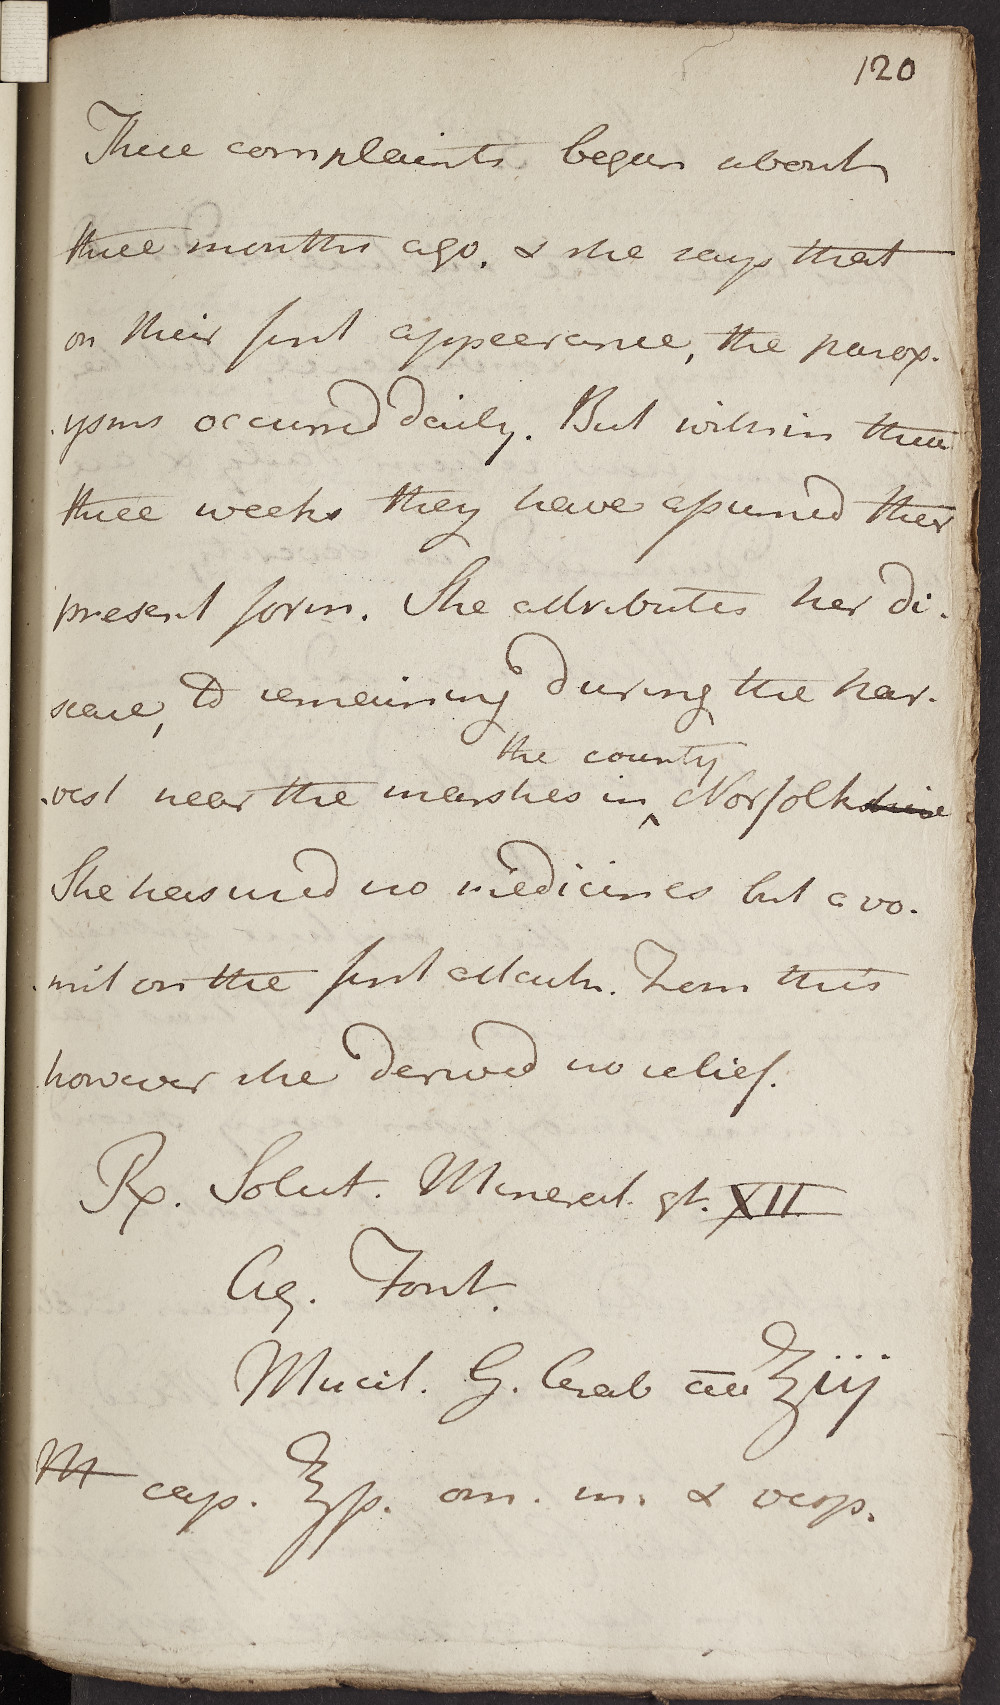 120
These complaints began about
three months ago. & she says that
on their first appearance, the parox-
-ysms occurred daily. But within these
three weeks they have assumed their
present form. She attributes her di-
sease, to remaining during the har-
the county
-vest near the marshes in ^ Norfolkshire
She has used no medicines but a vo-
-mit on the first attack. From this
however she derived no relief.
Rx. Solut. Mineral. gt. XII
Aq. Font.
Mucil. G. Arab āā ℥iij
M cap. ℥ſs. om. m. & vesp.